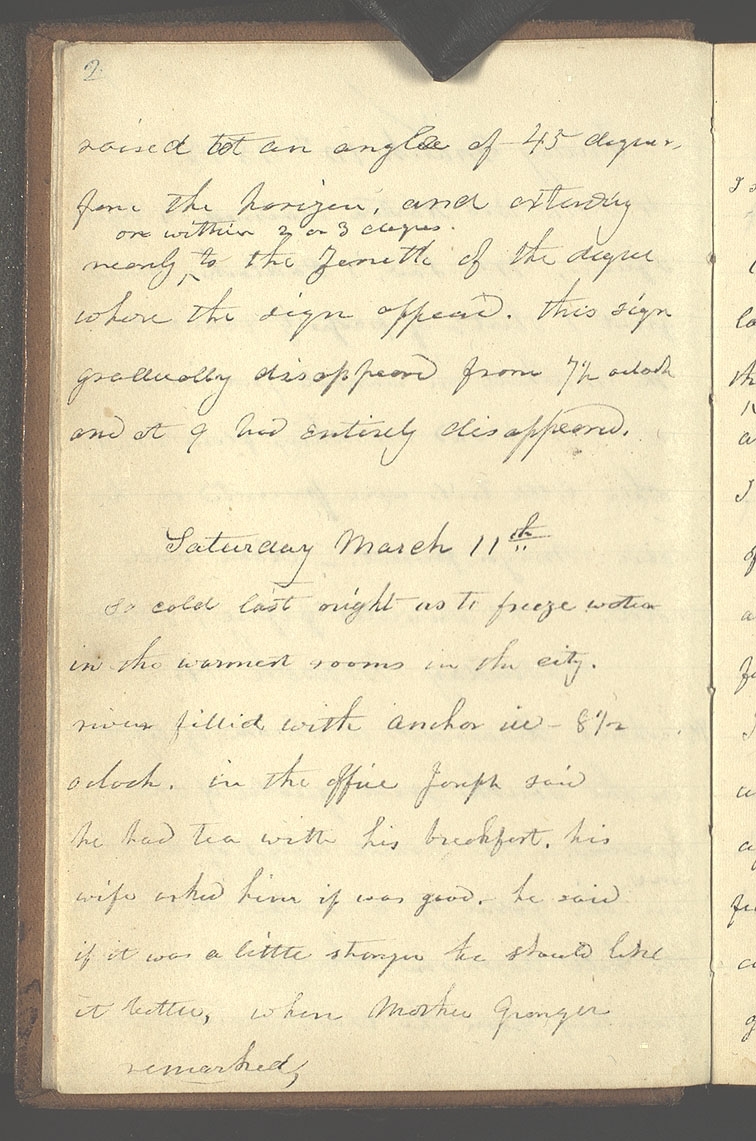 2
raised to an angle of 45 degrees,
from the horizen, and extending
or within 2 or 3 degrees.
nearly ^ to the Zenith of the degree
where the sign appeard. this sign
gradually disappeard from 7 1/2 oclock
and at 9 had entirely disappeard.
Saturday March 11th
So cold last night as to freeze water
in the warmest rooms in the city.
river filled with anchor ice - 8 1/2
oclock. in the office Joseph said
he had tea with his breakfast. his
wife asked him if was good. he said
if it was a little stronger he should like
it better, when Mother Granger
remarked,